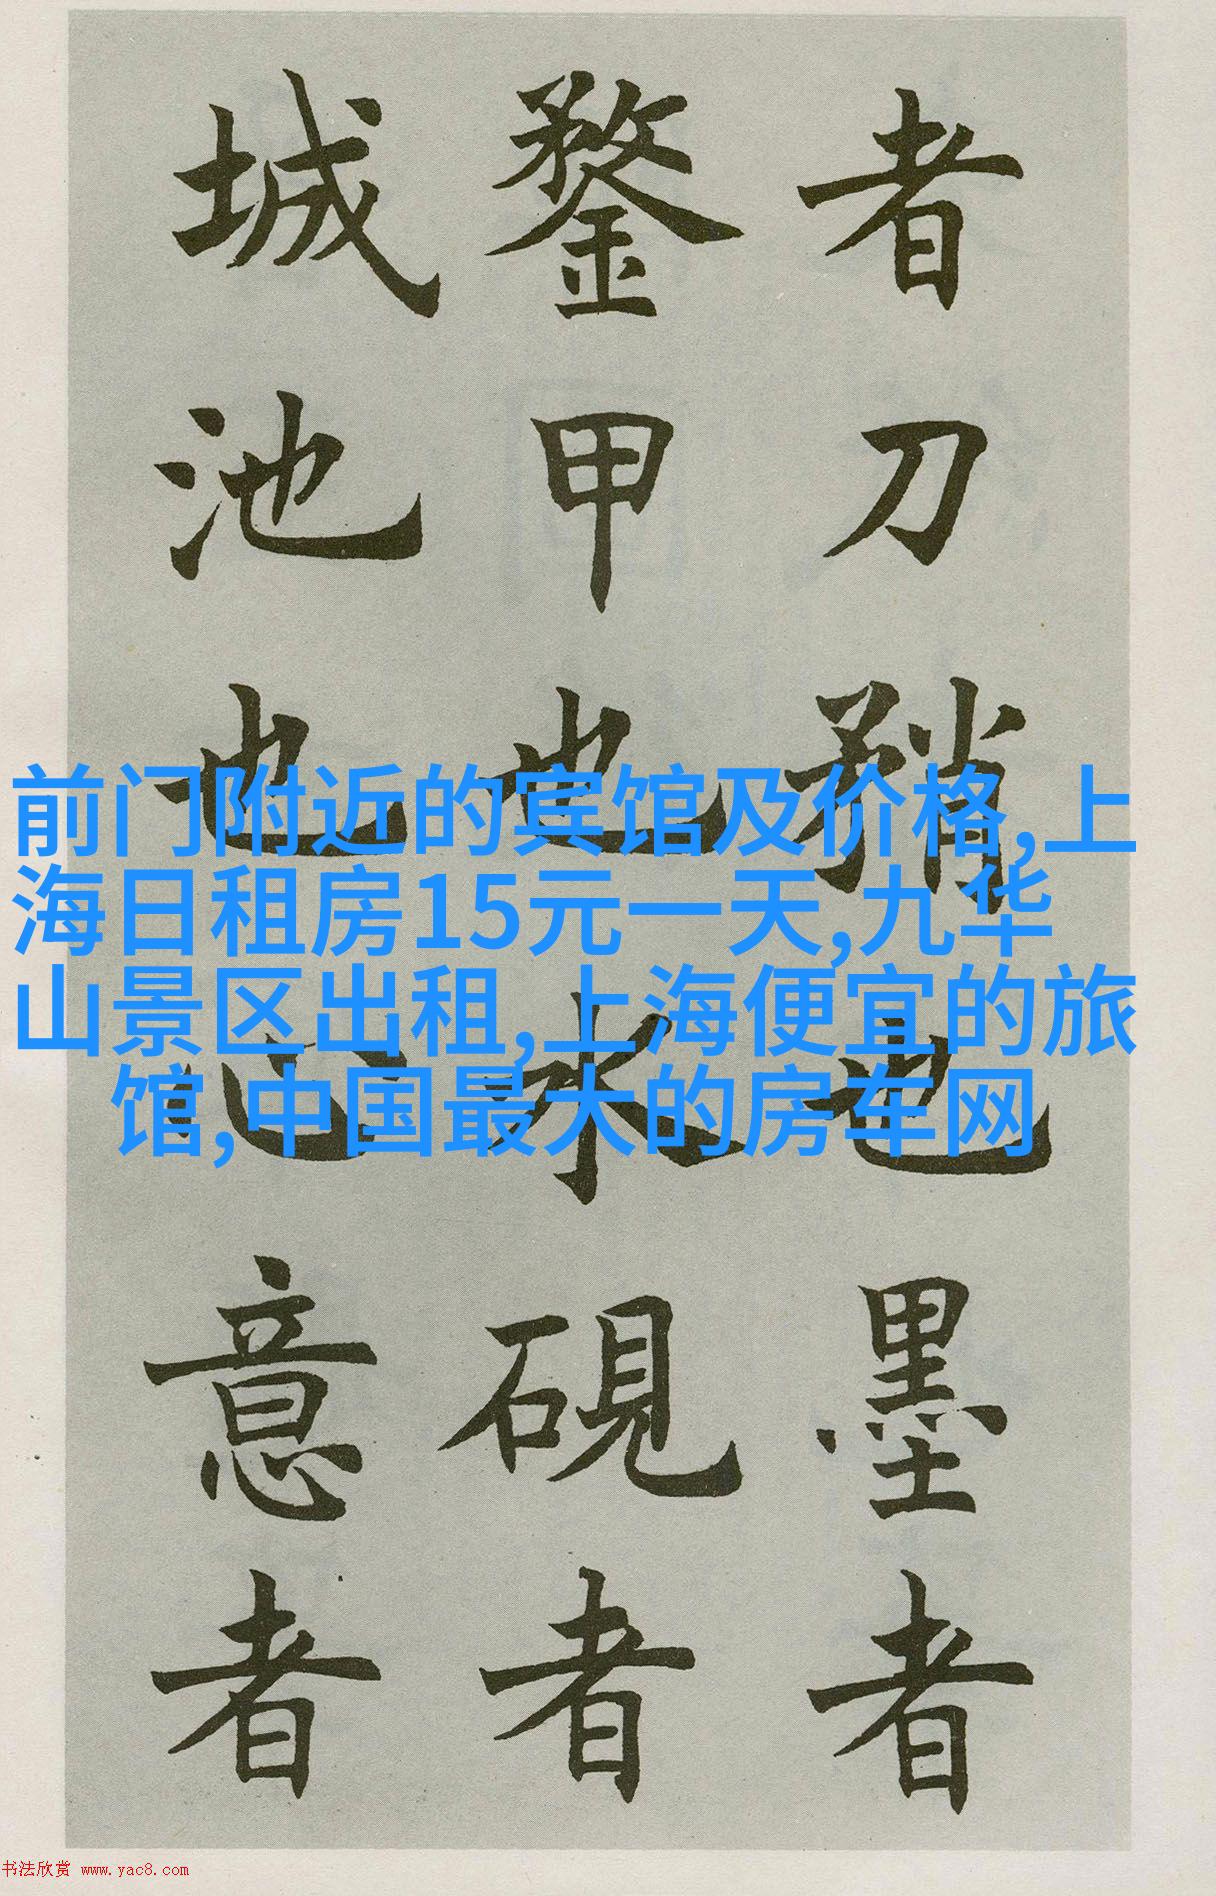 者刀矟也墨者
鍪甲也水硯者
城池也心意者
前门附近的宾馆及价格,上
海日租房15元一天,九华
山景区出租,上海便宜的旅
馆,中国最大的房车网
书法欣赏 www.yac8.com